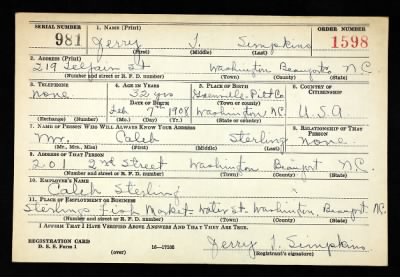 SERIAL NUMBER 1. NAME (Print) ORDER NUMBER
981 Jerry I. Simpkins 1598
(First) (Middle) (Last)
2. ADDRESS (Print)
219 Telfair St Washington Beaufort N.C.
(Number and street or R. F. D. number) (Town) (County) (State)
3. TELEPHONE 4. AGE IN YEARS 5. PLACE OF BIRTH 6. COUNTRY OF CITIZENSHIP
none. 32 yrs Greenville-Pitt Co
DATE OF BIRTH
Feb 7th 1908 Washington N.C. U.S.A
(Exchange) (Number) (Mo.) (Day) (Yr.) (State or country)
7. NAME OF PERSON WHO WILL ALWAYS KNOW YOUR ADDRESS 8. RELATIONSHIP OF THAT PERSON
Mr. Caleb Sterling none.
(Mr., Mrs., Miss) (First) (Middle) (Last)
9. ADDRESS OF THAT PERSON
201 2nd Street Washington Beaufort N.C.
(Number and street or R. F. D. number) (Town) (County) (State)
10. EMPLOYER'S NAME
Caleb Sterling
11. PLACE OF EMPLOYMENT OR BUSINESS
Sterlings Fish Market - Water St. Washington, Beaufort N.C.
(Number and street or R. F. D. number) (Town) (County) (State)
I AFFIRM THAT I HAVE VERIFIED ABOVE ANSWERS AND THAT THEY ARE TRUE.
REGISTRATION CARD
D. S. S. Form 1 16—17105 Jerry I. Simpkins
(over) (Registrant's signature)